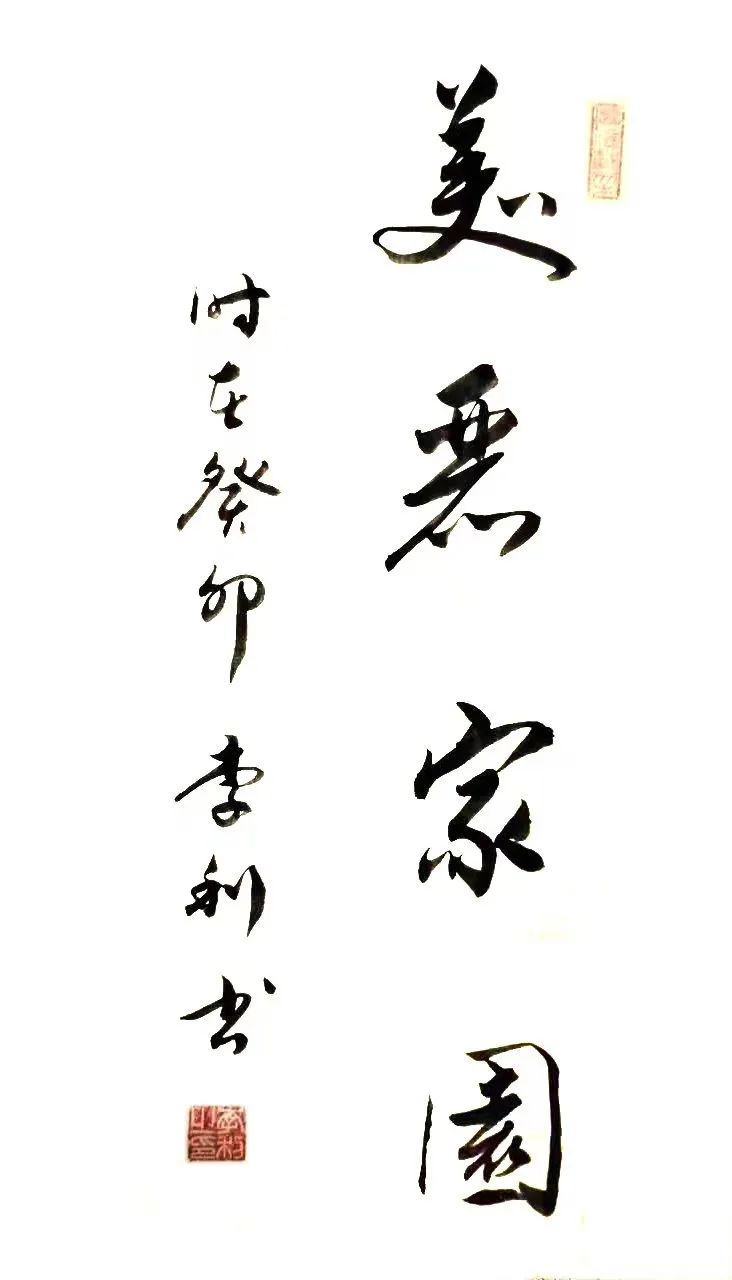 美丽家園
时在癸卯李利书